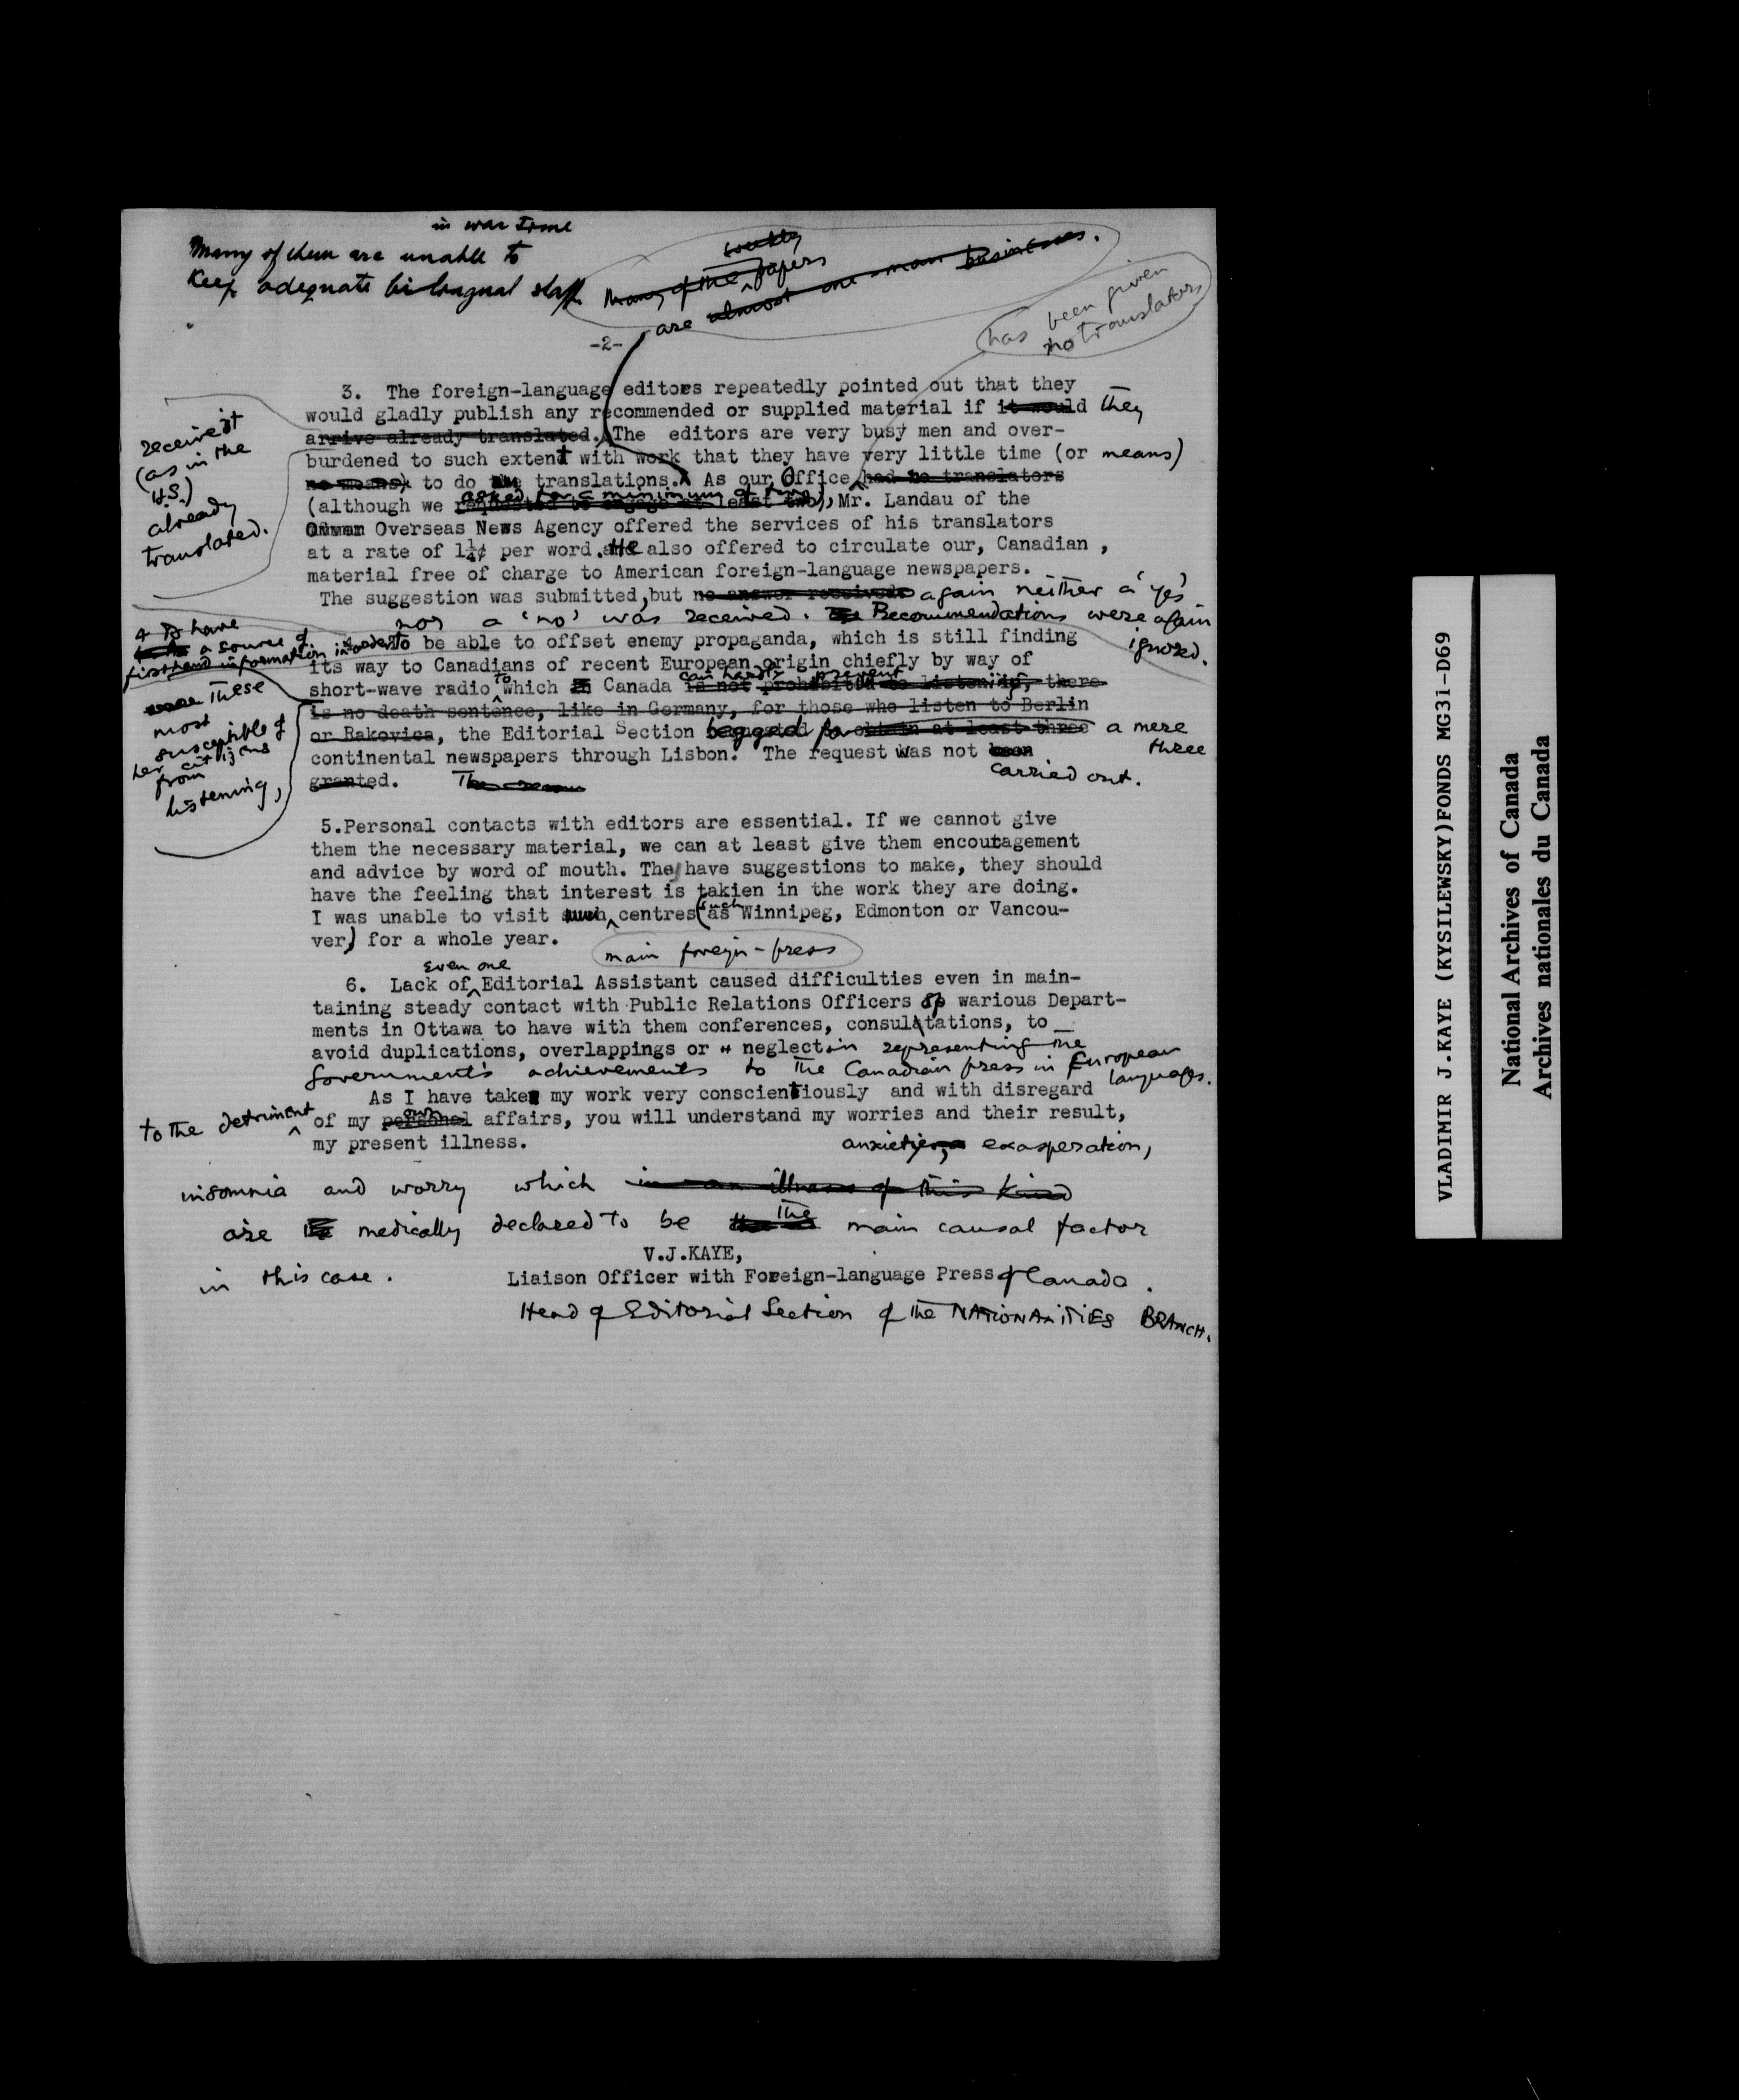 in war time
Many of them are unable to
keep adequate bilingual staff
weekly
Many of the papers
are almost one-man businesses.
has been given
no translators
-2-
3. The foreign-language editors repeatedly pointed out that they
would gladly publish any recommended or supplied material if it would they
arrive already translated. The editors are very busy men and over-
burdened to such extent with work that they have very little time (or means)
no means) to do the translations. As our Office had no translators
asked for a minimum of two),
(although we requested to engage at least two), Mr. Landau of the
Overseas News Agency offered the services of his translators
at a rate of 1¼¢ per word. He also offered to circulate our, Canadian ,
material free of charge to American foreign-language newspapers.
The suggestion was submitted, but no answer received again neither a 'yes'
nor a 'no' was received. The Recommendations were again
ignored.
receive it
(as in the
U.S.)
already
translated.
4 To have
a source of
firsthand information in order
To be able to offset enemy propaganda, which is still finding
its way to Canadians of recent European origin chiefly by way of
short-wave radio to which in Canada can hardly prevent is not prohibited to listening, there
is no death sentence, like in Germany, for those who listen to Berlin
or Rakovica, the Editorial Section begged for obtain at least three a mere
three
continental newspapers through Lisbon. The request was not been
granted. The reason carried out.
these
most
susceptible of
her citizens
from
listening,
5.Personal contacts with editors are essential. If we cannot give
them the necessary material, we can at least give them encoutagement
and advice by word of mouth. They have suggestions to make, they should
have the feeling that interest is takien in the work they are doing.
I was unable to visit such centres (such as Winnipeg, Edmonton or Vancou-
ver) for a whole year.
main foreign-press
even one
6. Lack of Editorial Assistant caused difficulties even in main-
taining steady contact with Public Relations Officers of warious Depart-
ments in Ottawa to have with them conferences, consultations, to
avoid duplications, overlappings or neglect in representing the
Government's achievements to the Canadian press in European
languages.
As I have taken my work very conscientiously and with disregard
to the detriment of my personal own affairs, you will understand my worries and their result,
my present illness. anxiety, exasperation,
insomnia and worry which in an illness of this kind
are medically declared to be the main causal factor
in this case.
V.J.KAYE,
Liaison Officer with Foreign-language Press of Canada.
Head of Editorial Section of the NATIONALITIES BRANCH.
VLADIMIR J.KAYE (KYSILEWSKY)FONDS MG31-D69
National Archives of Canada
Archives nationales du Canada